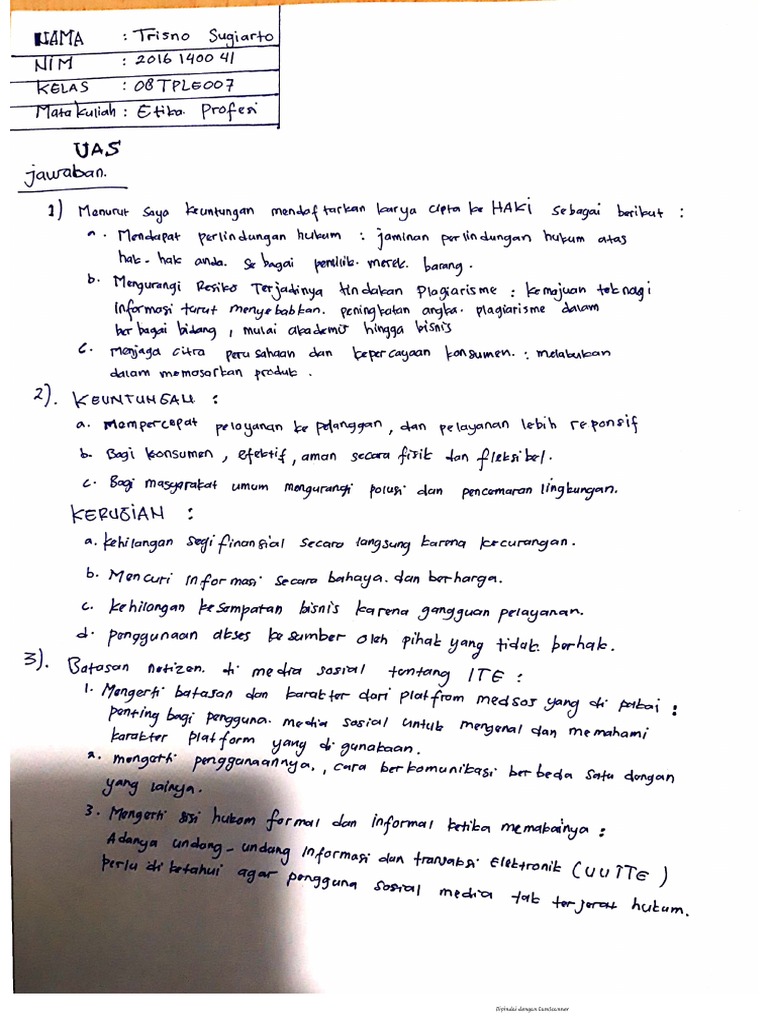 NAMA : Trisno Sugiarto
NIM : 2016 1400 41
KELAS : 08TPLE007
Mata kuliah : Etika Profesi
UAS
jawaban.
1) Menurut Saya keuntungan mendaftarkan karya cipta ke HAKI sebagai berikut :
a. Mendapat perlindungan hukum : jaminan perlindungan hukum atas
hak-hak anda. Sebagai pemilik merek barang.
b. Mengurangi Resiko Terjadinya tindakan Plagiarisme : kemajuan teknagi
informasi turut menyebabkan. peningkatan angka. plagiarisme dalam
berbagai bidang, mulai akademis hingga bisnis
c. Menjaga citra perusahaan dan kepercayaan konsumen. : melakukan
dalam memasarkan produk.
2). KEUNTUNGAN :
a. Mempercepat pelayanan ke pelanggan, dan pelayanan lebih reponsif
b. Bagi konsumen, efektif, aman secara fisik dan fleksibel.
c. Bagi masyarakat umum mengurangi polusi dan pencemaran lingkungan.
KERUGIAN :
a. kehilangan segi finansial secara langsung karena kecurangan.
b. Mencuri informasi secara bahaya. dan berharga.
c. kehilangan kesempatan bisnis karena gangguan pelayanan.
d. penggunaan akses ke sumber oleh pihak yang tidak berhak.
3). Batasan netizen. di media sosial tentang ITE :
1. Mengerti batasan dan karakter dari platfrom medsos yang di pakai :
penting bagi pengguna. media sosial untuk mengenal dan memahami
karakter platform yang di gunakaan.
2. mengerti penggunaannya,, cara berkomunikasi berbeda satu dengan
yang lainya.
3. Mengerti sisi hukom formal dan informal ketika memakainya :
Adanya undang-undang informasi dan transaksi Elektronik (UU ITE)
perlu di ketahui agar pengguna sosial media tak terjerat hukum.
Dipindai dengan CamScanner